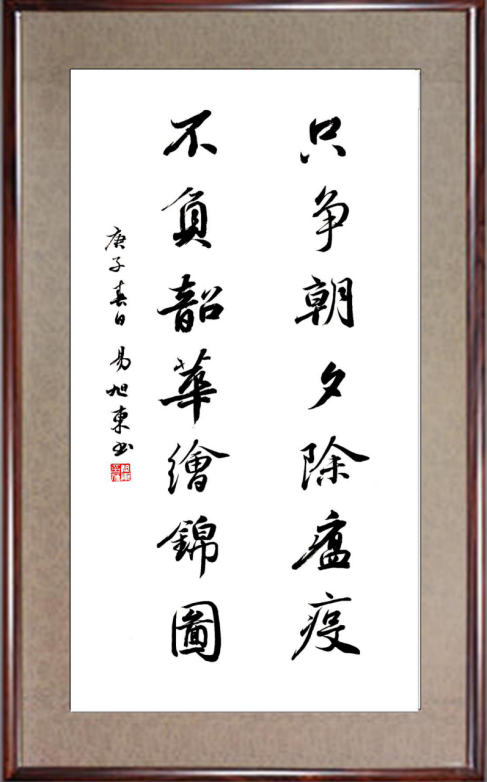 只争朝夕除瘟疫
不負韶華繪錦圖
庚子春日易旭東书